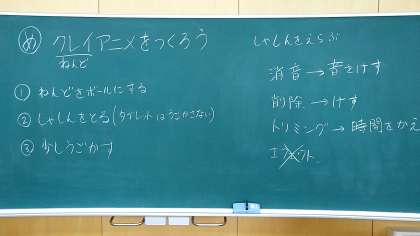 め クレイアニメをつくろう
ねんど
① ねんどをボールにする
② しゃしんをとる(タブレットはうごかさない)
③ 少しうごかす
しゃしんをえらぶ
消音→音をけす
削除→けす
トリミング→時間をかえ
エフェクト